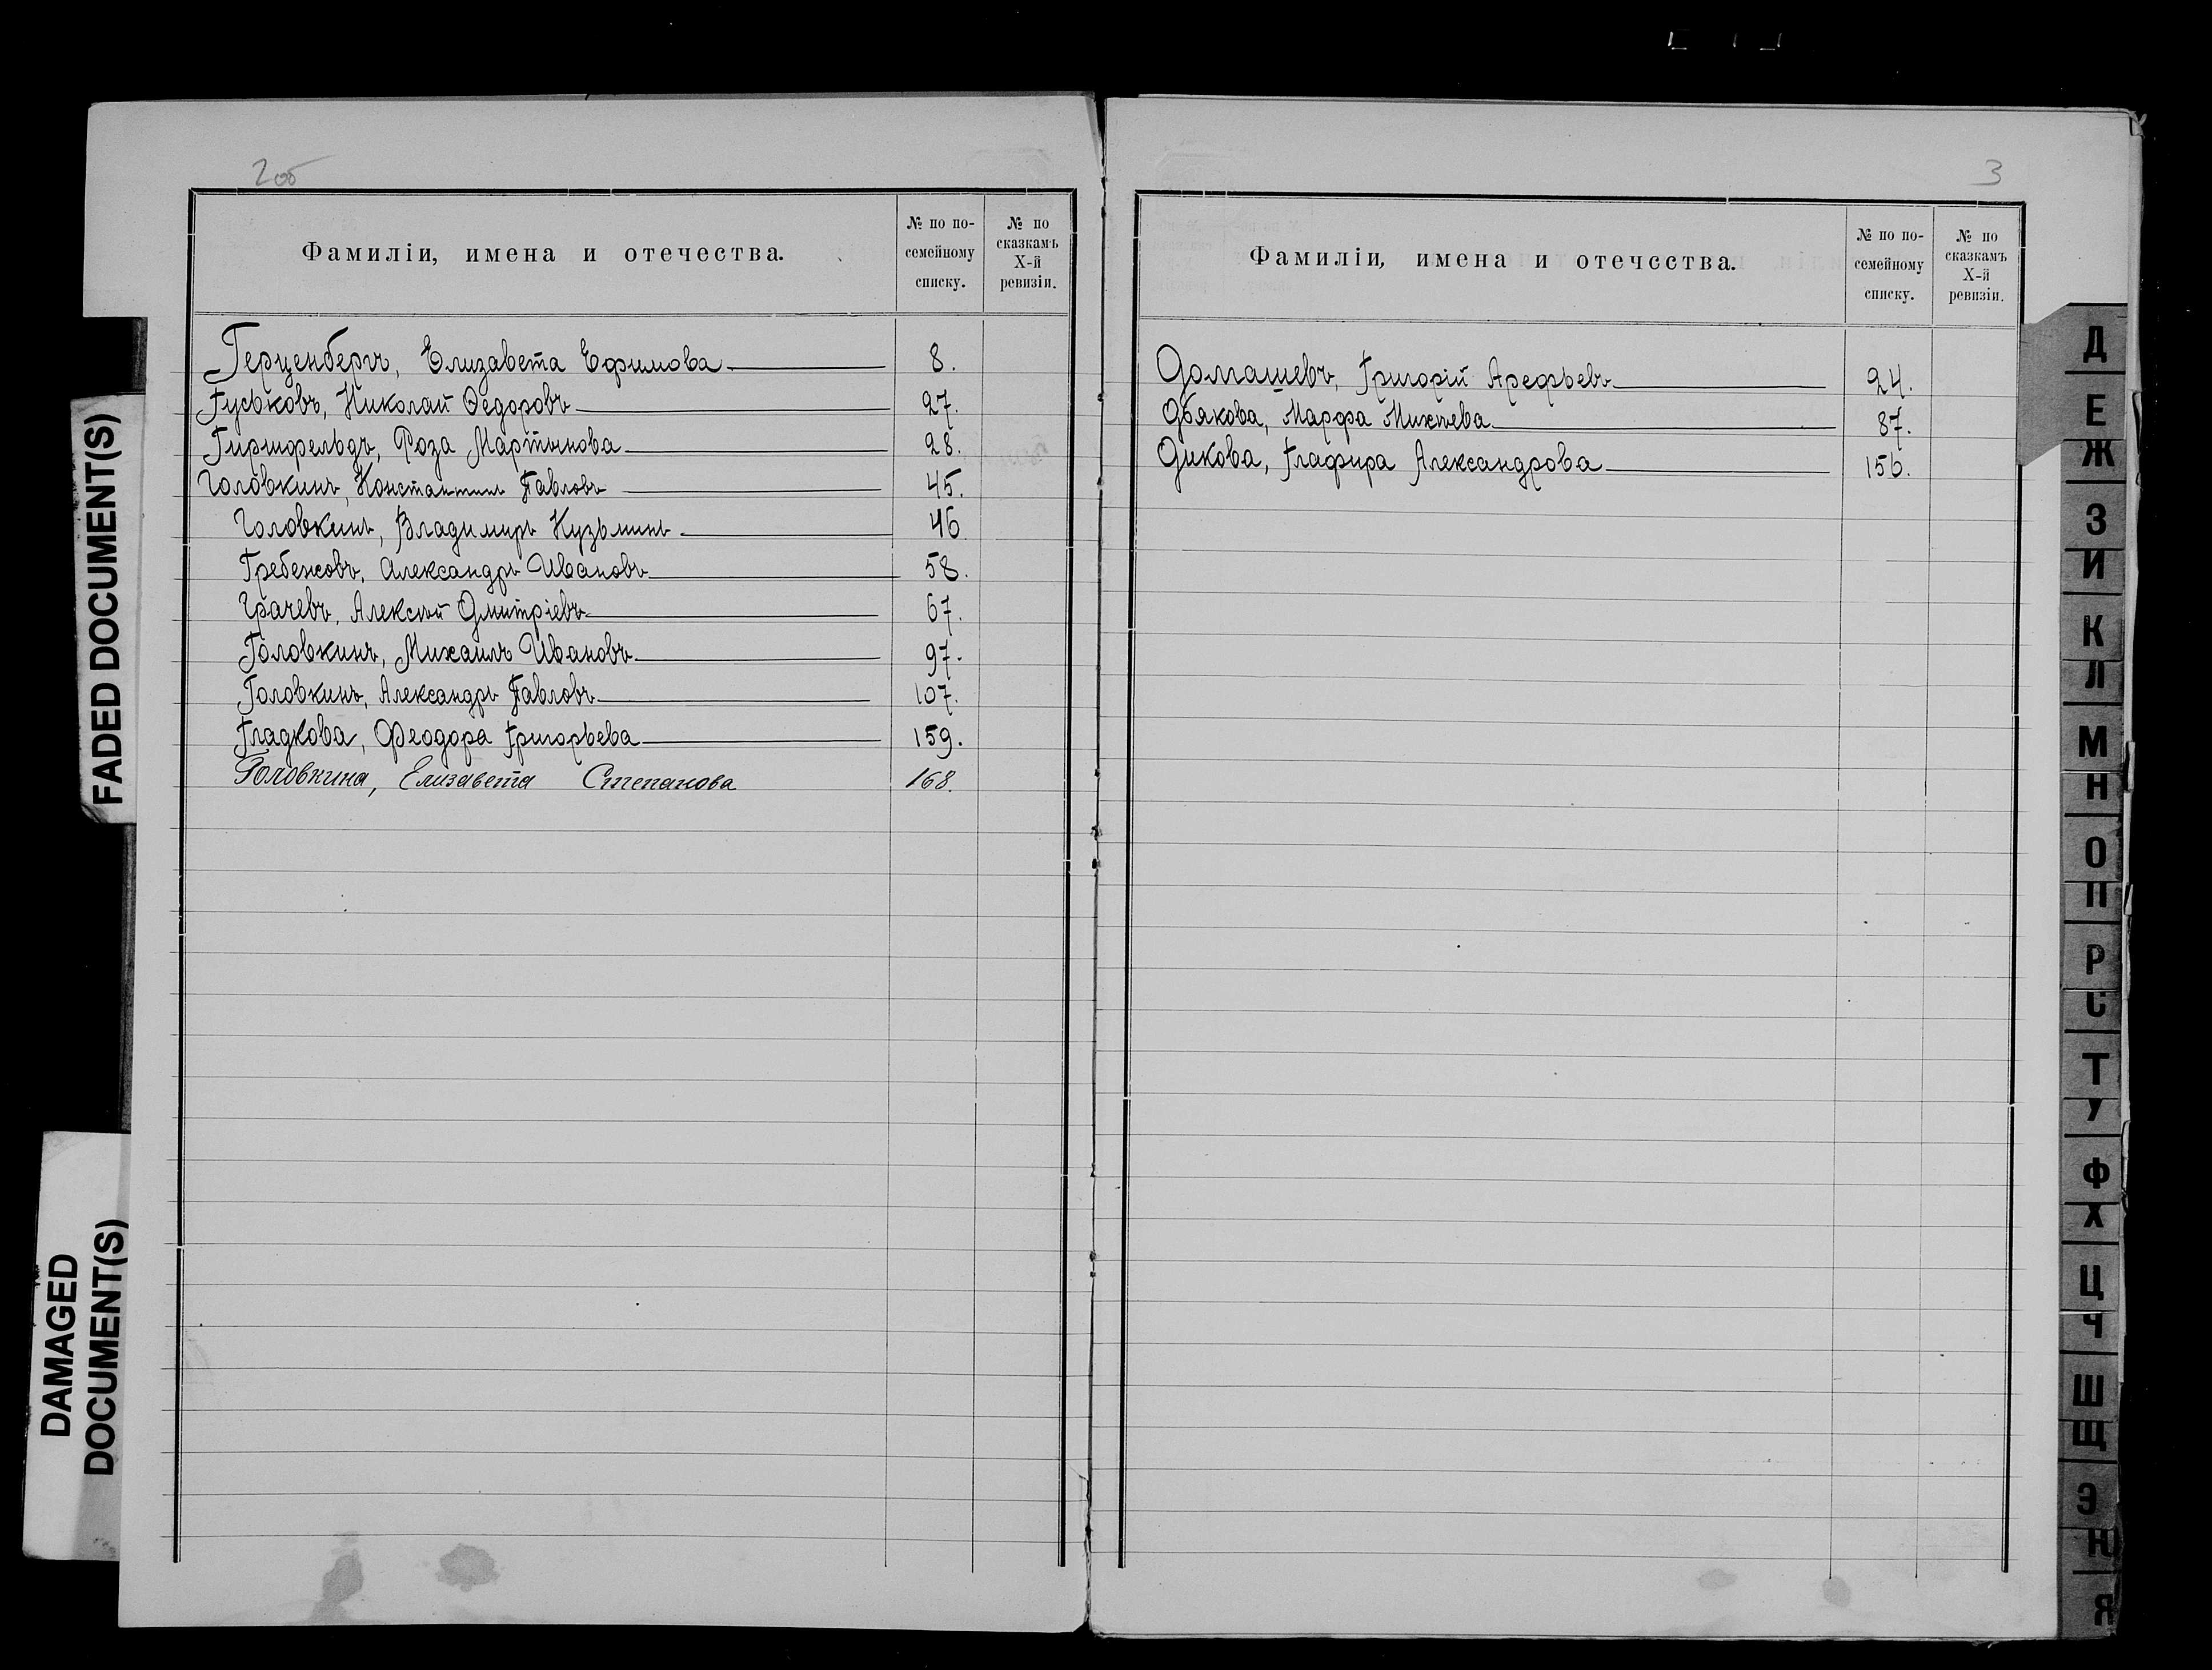 2об
Фамиліи, имена и отечества.
№ по по-
семейному
списку.
№ по
сказкамъ
X-й
ревизіи.
Герценбергъ, Елизавета Ефимова 8.
Гуськовъ, Николай Ѳедоровъ 27.
Гиршфельдъ, Роза Мартынова 28.
Головкинъ, Константинъ Павловъ 45.
Головкинъ, Владимиръ Кузьминъ 46
Гребенсовъ, Александръ Ивановъ 58.
Грачевъ, Алексѣй Дмитріевъ 67.
Головкинъ, Михаилъ Ивановъ 97.
Головкинъ, Александръ Павловъ 107.
Гладкова, Феодора Григорьева 159.
Головкина, Елизавета Степанова 168.
3
Фамиліи, имена и отечества.
№ по по-
семейному
списку.
№ по
сказкамъ
X-й
ревизіи.
Долгашевъ, Григорій Арефьевъ 24.
Марфа Михѣева 87.
Дикова, Глафира Александрова 156.
Д
Е
Ж
З
И
К
Л
М
Н
О
П
Р
С
Т
У
Ф
Х
Ц
Ч
Ш
Щ
Э
Ю
Я
FADED DOCUMENT(S)
DAMAGED
DOCUMENT(S)